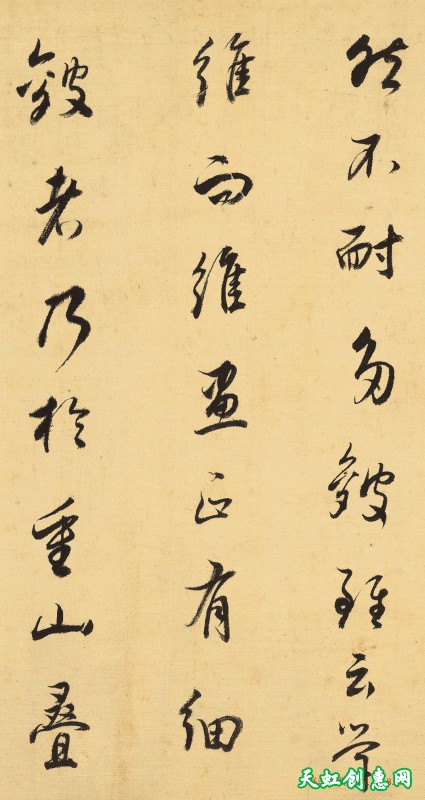 然不耐多皴雖云學
維而維畫正有細
皴者乃於重山疊
天虹创惠网